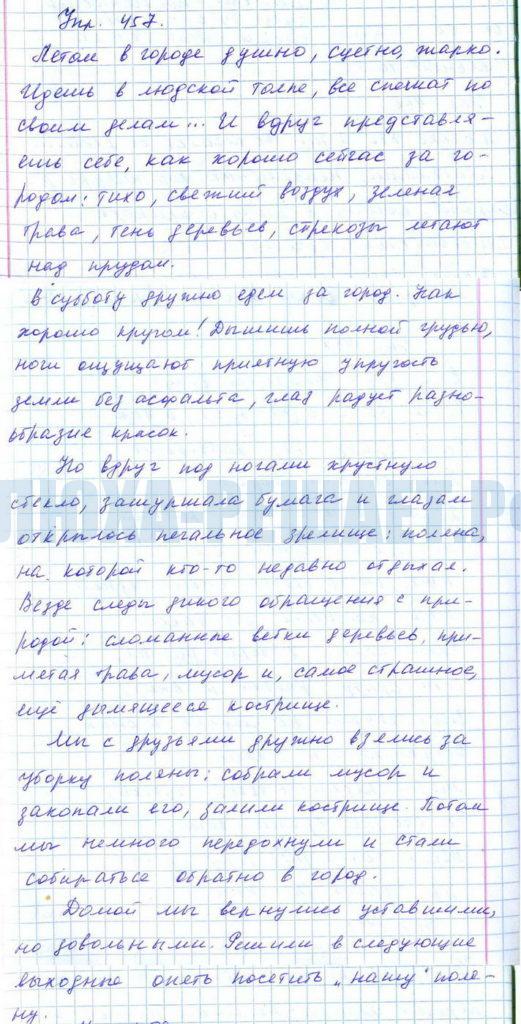 Упр. 457.
Летом в городе душно, суетно, жарко.
Идешь в людской толпе, все спешат по
своим делам... И вдруг представля-
ешь себе, как хорошо сейчас за го-
родом: тихо, свежий воздух, зеленая
трава, тень деревьев, стрекозы летают
над прудом.
В субботу дружно едем за город. Как
хорошо кругом! Дышишь полной грудью,
ноги ощущают приятную упругость
земли без асфальта, глаз радует разно-
образие красок.
Но вдруг под ногами хрустнуло
стекло, зашуршала бумага и глазам
открылось печальное зрелище: поляна,
на которой кто-то недавно отдыхал.
Везде следы дикого обращения с при-
родой: сломанные ветки деревьев, при-
мятая трава, мусор и, самое страшное,
ещё дымящееся кострище.
Мы с друзьями дружно взялись за
уборку поляны: собрали мусор и
закопали его, залили кострище. Потом
мы немного передохнули и стали
собираться обратно в город.
Домой мы вернулись уставшими,
но довольными. Решили в следующие
выходные опять посетить „нашу" поля-
ну.